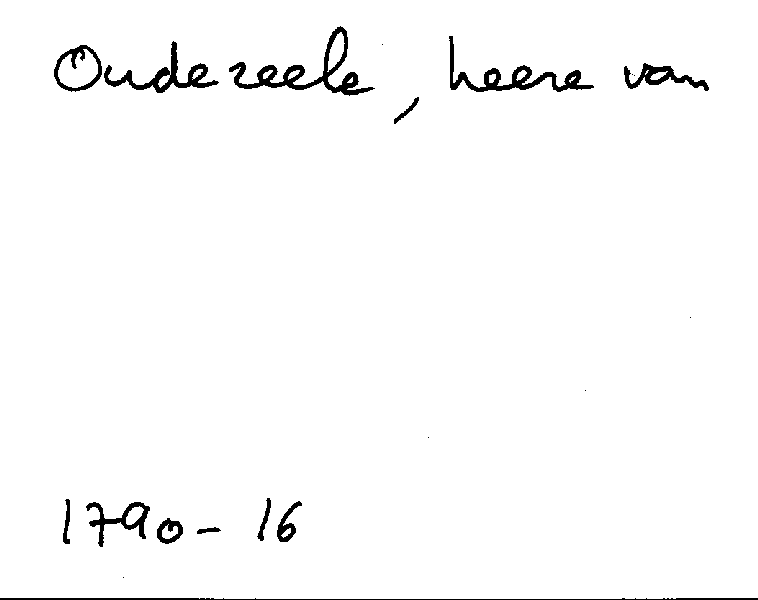 Oudezeele, heere van
1790-16